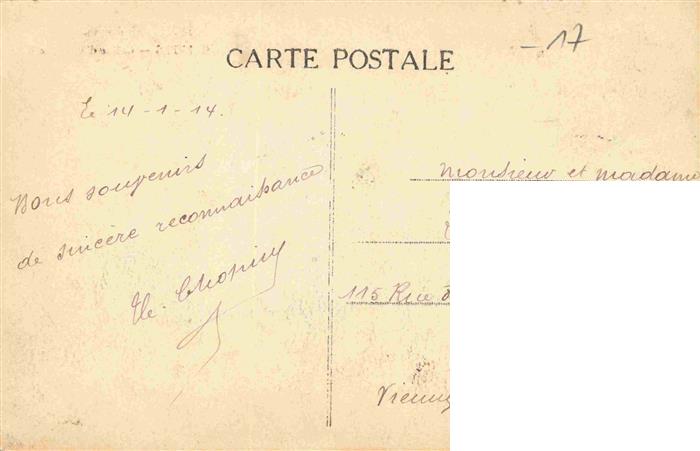 CARTE POSTALE
- 17
le 14-1-14.
Bons souvenirs
de sincère reconnaissance
Monsieur et madame
115 Rue